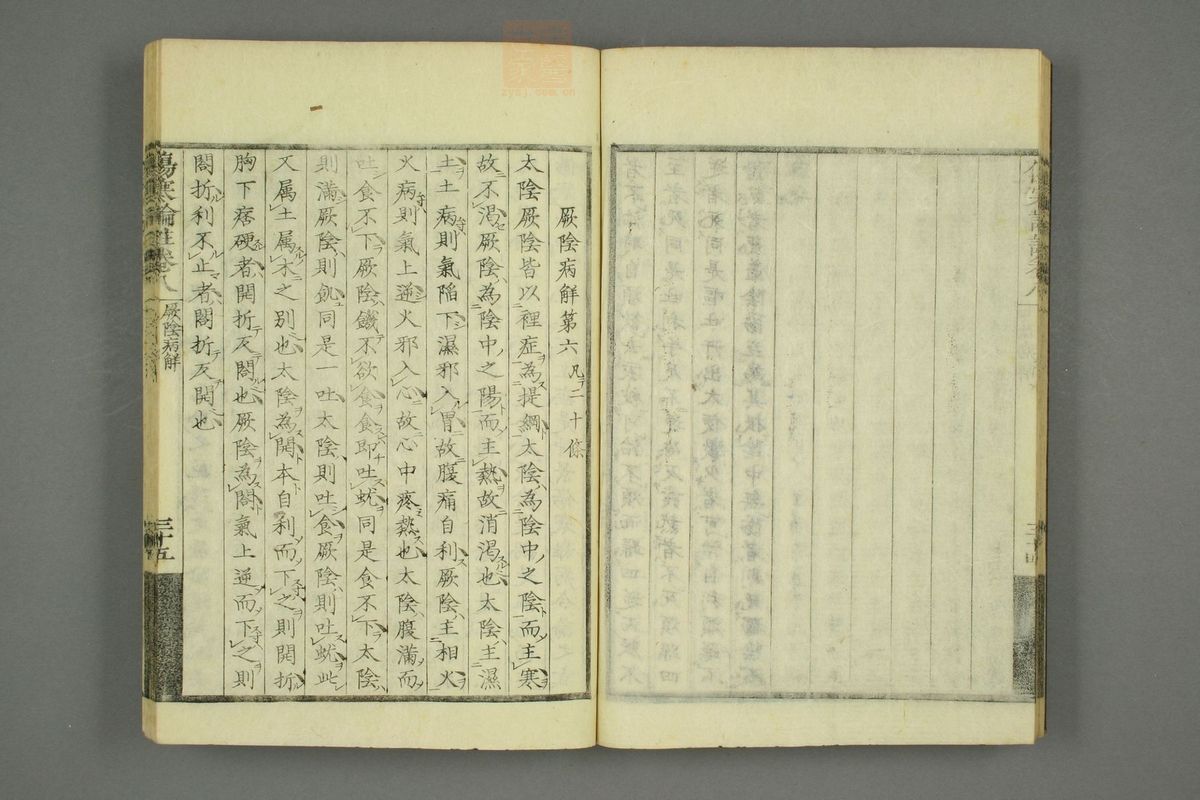 厥陰病解第六 凡二十條
太陰厥陰皆以裡症為提綱太陰為陰中之陰而主寒
故不渴厥陰為陰中之陽而主熱故消渴也太陰主濕
土土病則氣陷下濕邪入胃故腹痛自利厥陰主相火
火病則氣上逆火邪入心故心中疼熱也太陰腹滿而
吐食不下厥陰饑不欲食食即吐蚘同是食不下太陰
則滿厥陰則飢同是一吐太陰則吐食厥陰則吐蚘此
又属土属木之別也太陰為開本自利而下之則開折
胸下痞硬者開折反閤也厥陰為閤氣上逆而下之則
閤折利不止者閤折反開也
傷寒論註卷八
厥陰病解
三十五
zysj.com.cn